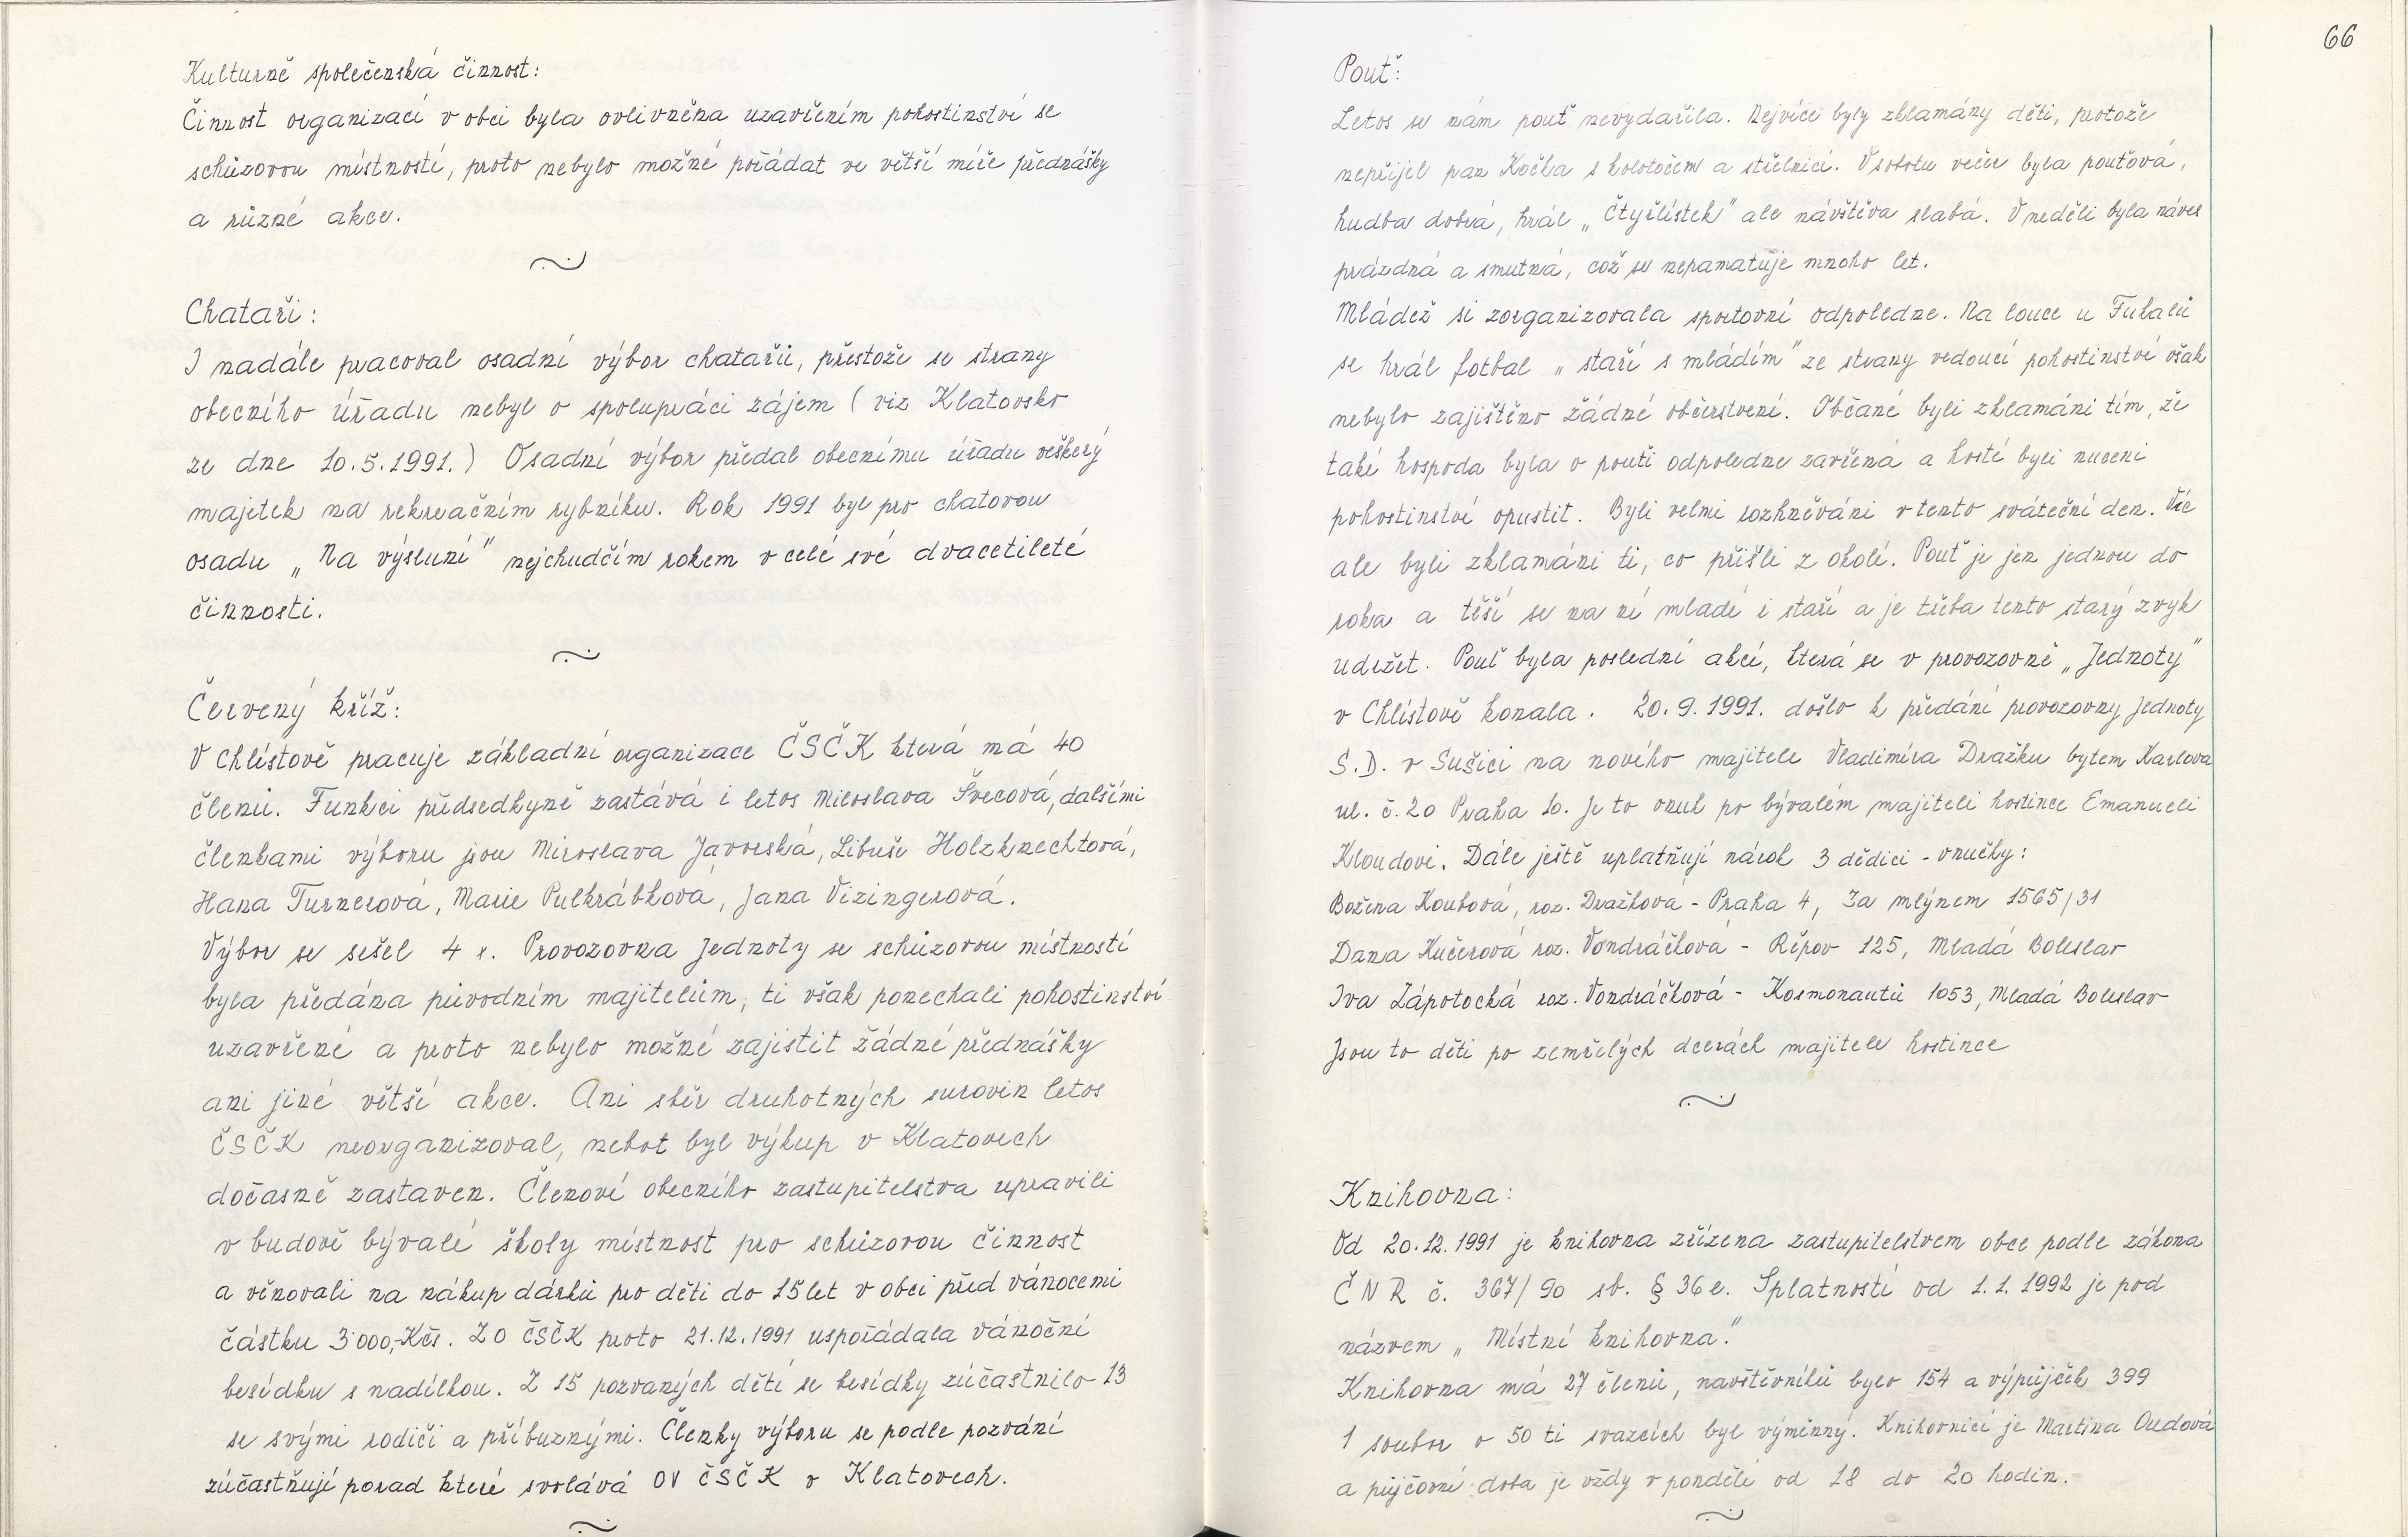 Kulturně společenská činnost:
Činnost organizací v obci byla ovlivněna uzavřením pohostinství se
schůzovou místností, proto nebylo možné pořádat ve větší míře přednášky
a různé akce.
Chataři:
I nadále pracoval osadní výbor chatařů, přestože se strany
obecního úřadu nebyl o spolupráci zájem ( viz Klatovsko
ze dne 10.5.1991.) Osadní výbor předal obecnímu úřadu veškerý
majitek na rekreačním rybníku. Rok 1991 byl pro chatovou
osadu „Na výsluní" nejchudčím rokem v celé své dvacetileté
činnosti.
Červený kříž:
V Chlístově pracuje základní organizace ČSČK která má 40
členů. Funkci předsedkyně zastává i letos Miloslava Švecová, dalšími
členkami výboru jsou Miroslava Javorská, Libuše Holzknechtová,
Hana Turnerová, Marie Pulkrábková, Jana Vizingerová.
Výbor se sešel 4 x. Provozovna Jednoty se schůzovou místností
byla předána původním majitelům, ti však ponechali pohostinství
uzavřené a proto nebylo možné zajistit žádné přednášky
ani jiné větší akce. Ani sběr druhotných surovin letos
ČSČK neorganizoval, nebot byl výkup v Klatovech
dočasně zastaven. Členové obecního zastupitelstva upravili
v budově bývalé školy místnost pro schůzovou činnost
a věnovali na nákup dárků pro děti do 15 let v obci před vánocemi
částku 3000,-Kčs. ZO ČSČK proto 21.12.1991 uspořádala vánoční
besídku s nadílkou. Z 15 pozvaných dětí se besídky zúčastnilo 13
se svými rodiči a příbuznými. Členky výboru se podle pozvání
zúčastňují porad které svolává OV ČSČK v Klatovech.
66
Pouť:
Letos se nám pouť nevydařila. Nejvíce byly zklamány děti, protože
nepřijel pan Kočka s kolotočem a střelnicí. V sobotu večer byla pouťová,
hudba dobrá, hrál „Čtyřlístek" ale návštěva slabá. V neděli byla náves
prázdná a smutná, což se nepamatuje mnoho let.
Mládež si zorganizovala sportovní odpoledne. Na louce u Fukalů
se hrál fotbal „ staří s mládím" ze strany vedoucí pohostinství však
nebylo zajištěno žádné občerstvení. Občané byli zklamáni tím, že
také hospoda byla o pouti odpoledne zavřená a hosté byli nuceni
pohostinství opustit. Byli velmi rozhněváni v tento sváteční den. Víc
ale byli zklamáni ti, co přišli z okolí. Pouť je jen jednou do
roka a těší se na ní mladé i staří a je třeba tento starý zvyk
udržet. Pouť byla poslední akcí, která se v provozovně „Jednoty"
v Chlístově konala. 20.9.1991. došlo k předání provozovny Jednoty
S.D. v Sušici na nového majitele Vladimíra Dražku bytem Karlova
ul. č. 20 Praha 10. Je to vnuk po bývalém majiteli hostince Emanueli
Kloudovi. Dále ještě uplatňují nárok 3 dědici - vnučky:
Božena Koubová, roz. Dražková - Praha 4, Za mlýnem 1565/31
Dana Kučerová roz. Vondráčková - Řepov 125, Mladá Boleslav
Iva Zápotocká roz. Vondráčková - Kosmonautů 1053, Mladá Boleslav
Jsou to děti po zemřelých dcerách majitele hostince
Knihovna:
Od 20.12.1991 je knihovna zřízena zastupitelstvem obce podle zákona
ČNR č. 367/90 sb. § 36 e. Splatností od 1.1.1992 je pod
názvem „ Místní knihovna."
Knihovna má 27 členů, navštěvníků bylo 154 a výpůjček 399
1 soubor o 50 ti svazcích byl výměnný. Knihovnicí je Martina Oudová
a půjčovní doba je vždy v pondělí od 18 do 20 hodin.